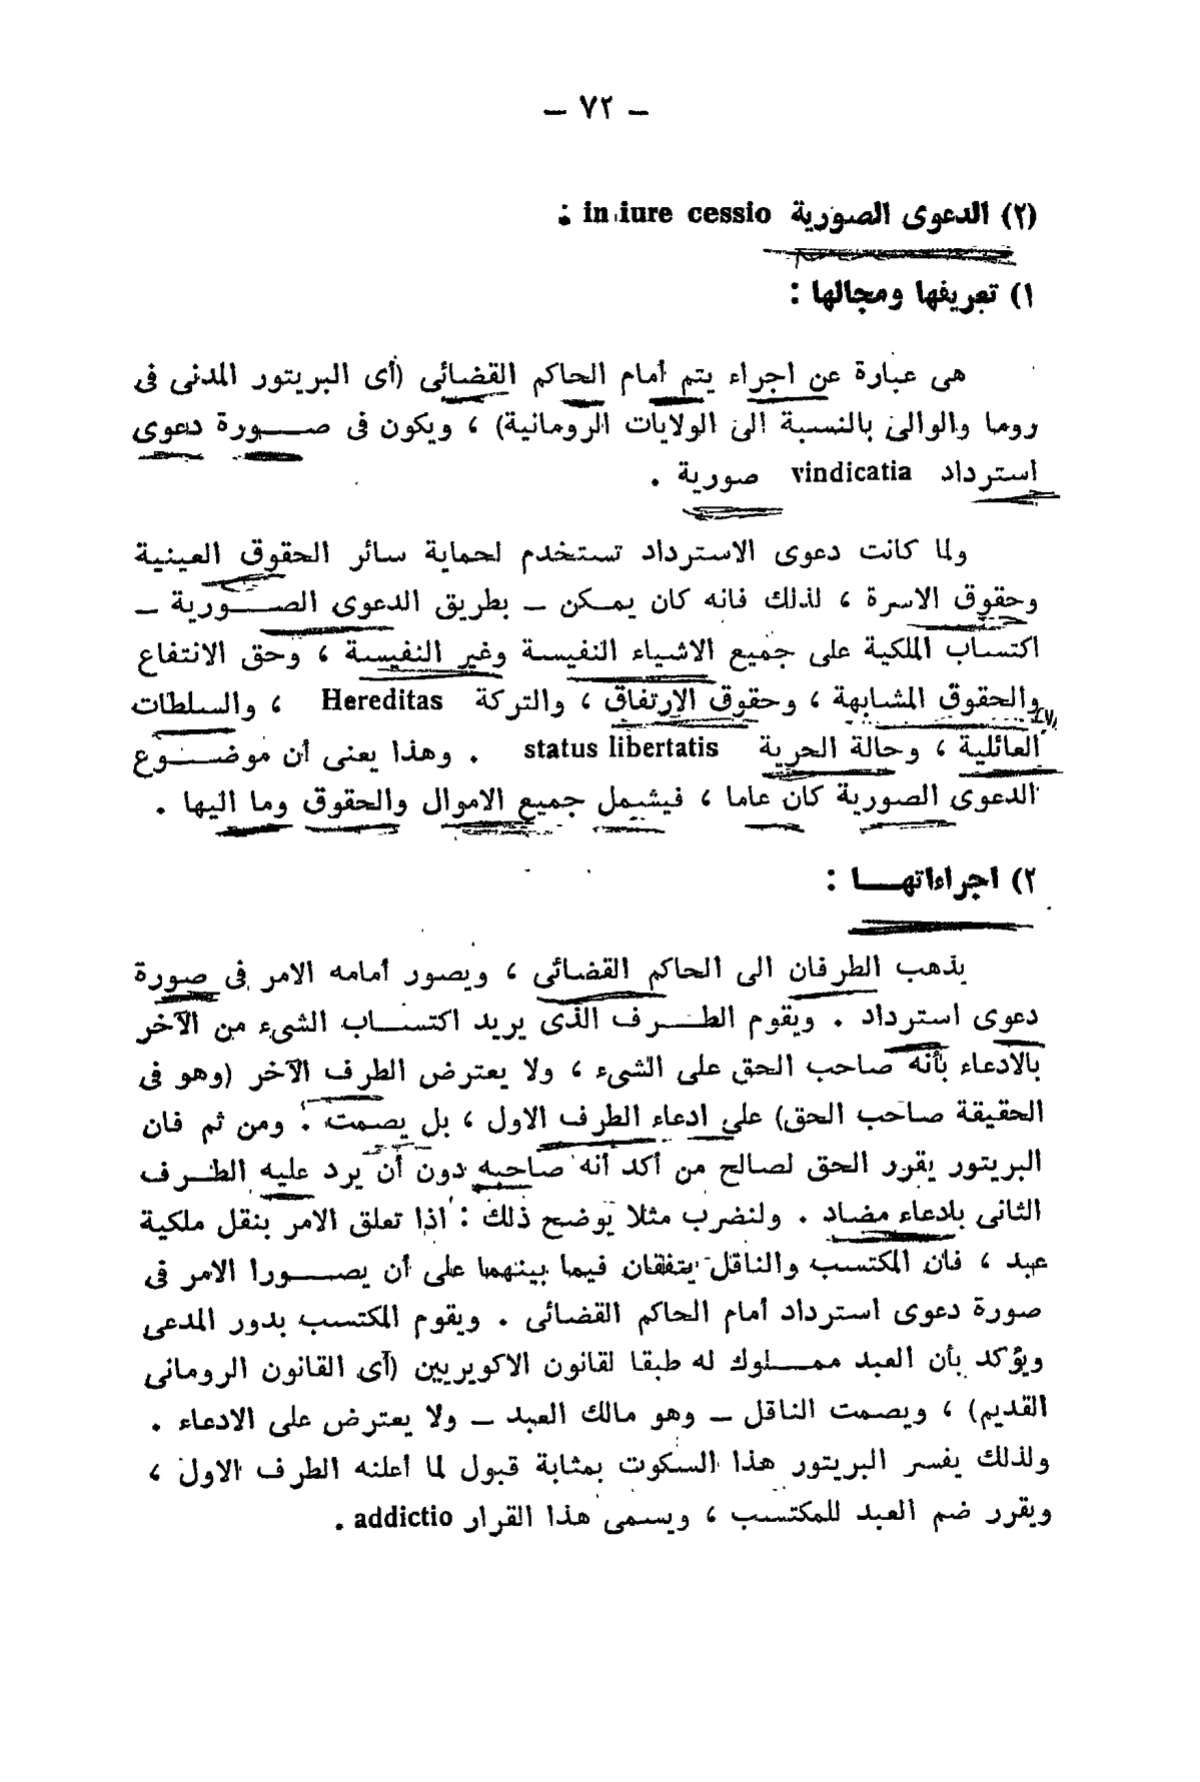 — ٧٢ —
(٢) الدعوى الصورية in iure cessio :
١) تعريفها ومجالها :
هى عبارة عن اجراء يتم أمام الحاكم القضائى (أى البريتور المدنى فى
روما والوالى بالنسبة الى الولايات الرومانية) ، ويكون فى صـــورة دعوى
استرداد vindicatia صورية .
ولما كانت دعوى الاسترداد تستخدم لحماية سائر الحقوق العينية
وحقوق الاسرة ، لذلك فانه كان يمـكن – بطريق الدعوى الصـــورية –
اكتساب الملكية على جميع الاشياء النفيسة وغير النفيسة ، وحق الانتفاع
والحقوق المشابهة ، وحقوق الارتفاق ، والتركة Hereditas ، والسلطات
العائلية ، وحالة الحرية status libertatis . وهذا يعنى أن موضـــوع
الدعوى الصورية كان عاما ، فيشمل جميع الاموال والحقوق وما اليها .
٢) اجراءاتهـــا :
يذهب الطرفان الى الحاكم القضائى ، ويصور أمامه الامر فى صورة
دعوى استرداد . ويقوم الطـــرف الذى يريد اكتســـاب الشىء من الآخر
بالادعاء بأنه صاحب الحق على الشىء ، ولا يعترض الطرف الآخر (وهو فى
الحقيقة صاحب الحق) على ادعاء الطرف الاول ، بل يصمت . ومن ثم فان
البريتور يقرر الحق لصالح من أكد أنه صاحبه دون أن يرد عليه الطـــرف
الثانى بادعاء مضاد . ولنضرب مثلا يوضح ذلك : اذا تعلق الامر بنقل ملكية
عبد ، فان المكتسب والناقل يتفقان فيما بينهما على أن يصـــورا الامر فى
صورة دعوى استرداد أمام الحاكم القضائى . ويقوم المكتسب بدور المدعى
ويؤكد بأن العبد ممـــلوك له طبقا لقانون الاكويريين (أى القانون الرومانى
القديم) ، ويصمت الناقل – وهو مالك العبد – ولا يعترض على الادعاء .
ولذلك يفسر البريتور هذا السكوت بمثابة قبول لما أعلنه الطرف الاول ،
ويقرر ضم العبد للمكتسب ، ويسمى هذا القرار addictio .